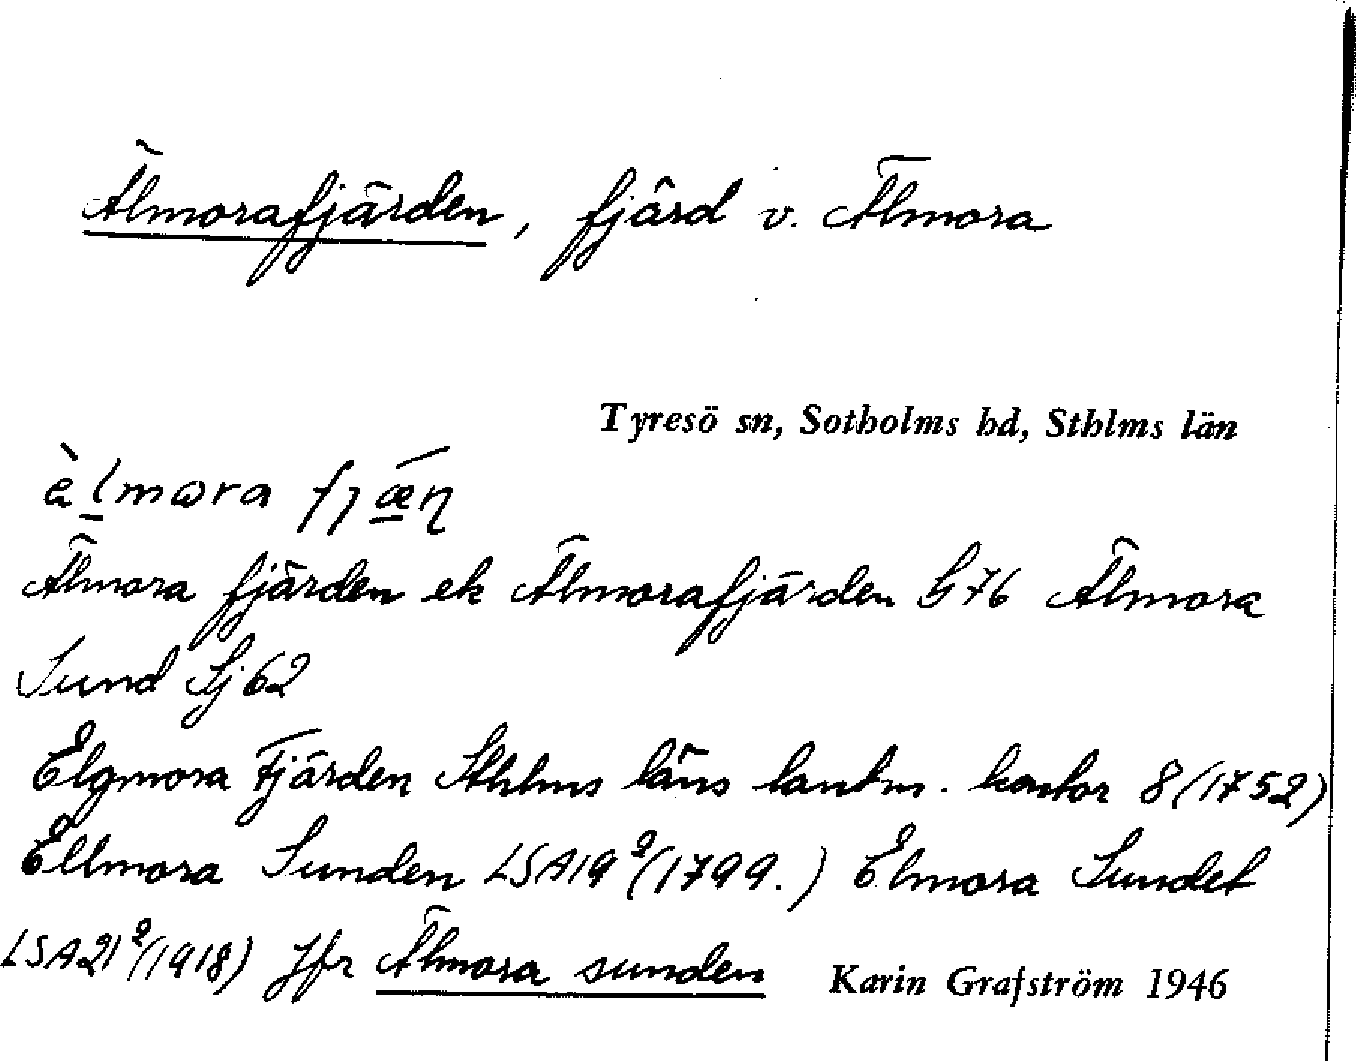 Älmorafjärden, fjärd v. Älmora
Tyresö sn, Sotholms hd, Sthlms län
Älmora fjärden ek Älmorafjärden G 76 Älmora
Sund Sj 62
Elgmora Fjärden Sthlms läns lantm. kontor 8 (1752)
Ellmora Sunden LSA 19² (1799.) Elmora Sundet
LSA 21² (1918) Jfr Älmora sunden Karin Grafström 1946